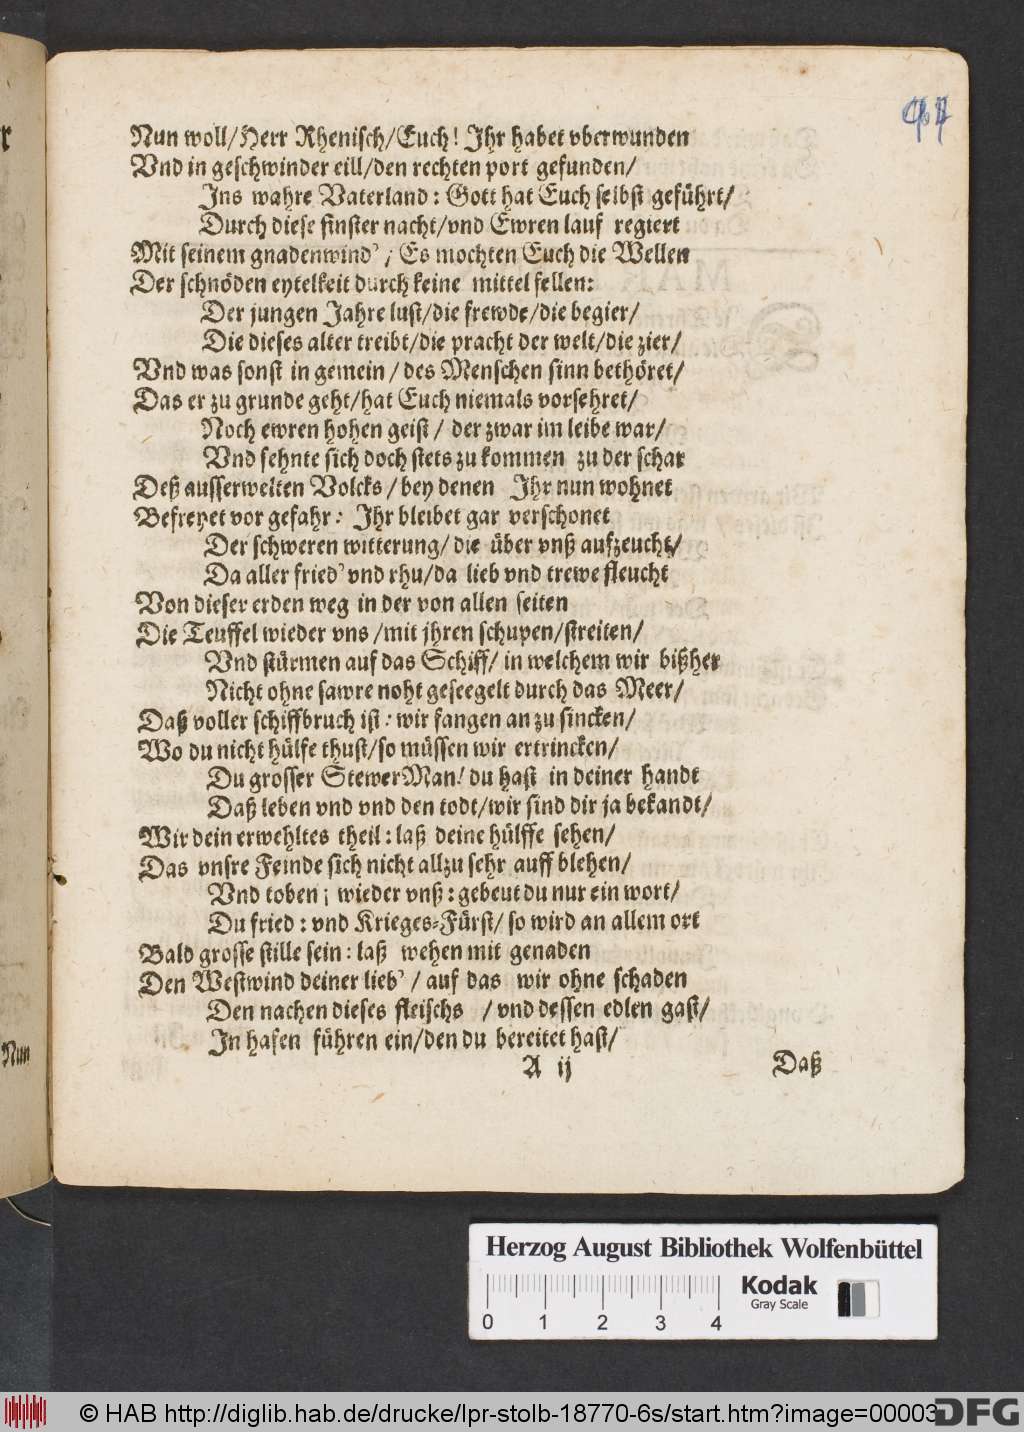 Nun woll/Herr Rhenisch/Euch! Ihr habet vberwunden
Vnd in geschwinder eill/den rechten port gefunden/
Ins wahre Vaterland: Gott hat Euch selbst geführt/
Durch diese finster nacht/vnd Ewren lauf regiert
Mit seinem gnadenwind' / Es mochten Euch die Wellen
Der schnöden eytelkeit durch keine mittel fellen:
Der jungen Jahre lust/die frewde/die begier/
Die dieses alter treibt/die pracht der welt/die zier/
Vnd was sonst in gemein / des Menschen sinn bethöret/
Das er zu grunde geht/hat Euch niemals vorsehret/
Noch ewren hohen geist / der zwar im leibe war/
Vnd sehnte sich doch stets zu kommen zu der schar
Deß ausserwelten Volcks / bey denen Ihr nun wohnet
Befreyet vor gefahr: Ihr bleibet gar verschonet
Der schweren witterung/ die über vnß aufzeucht/
Da aller fried' vnd rhu/da lieb vnd trewe fleucht
Von dieser erden weg in der von allen seiten
Die Teuffel wieder vns /mit jhren schupen/streiten/
Vnd stürmen auf das Schiff/ in welchem wir bißher
Nicht ohne sawre noht geseegelt durch das Meer/
Daß voller schiffbruch ist: wir fangen an zu sincken/
Wo du nicht hülfe thust/so müssen wir ertrincken/
Du grosser StewerMan! du hast in deiner handt
Daß leben vnd vnd den todt/wir sind dir ja bekandt/
Wir dein erwehltes theil: laß deine hülffe sehen/
Das vnsre Feinde sich nicht allzu sehr auff blehen/
Vnd toben; wieder vnß: gebeut du nur ein wort/
Du fried: vnd Krieges-Fürst/ so wird an allem ort
Bald grosse stille sein: laß wehen mit genaden
Den Westwind deiner lieb' / auf das wir ohne schaden
Den nachen dieses fleischs / vnd dessen edlen gast/
In hafen führen ein/den du bereitet hast/
A ij Daß
r
Nun
Herzog August Bibliothek Wolfenbüttel
Kodak
Gray Scale
0 1 2 3 4
© HAB http://diglib.hab.de/drucke/lpr-stolb-18770-6s/start.htm?image=00003
DFG